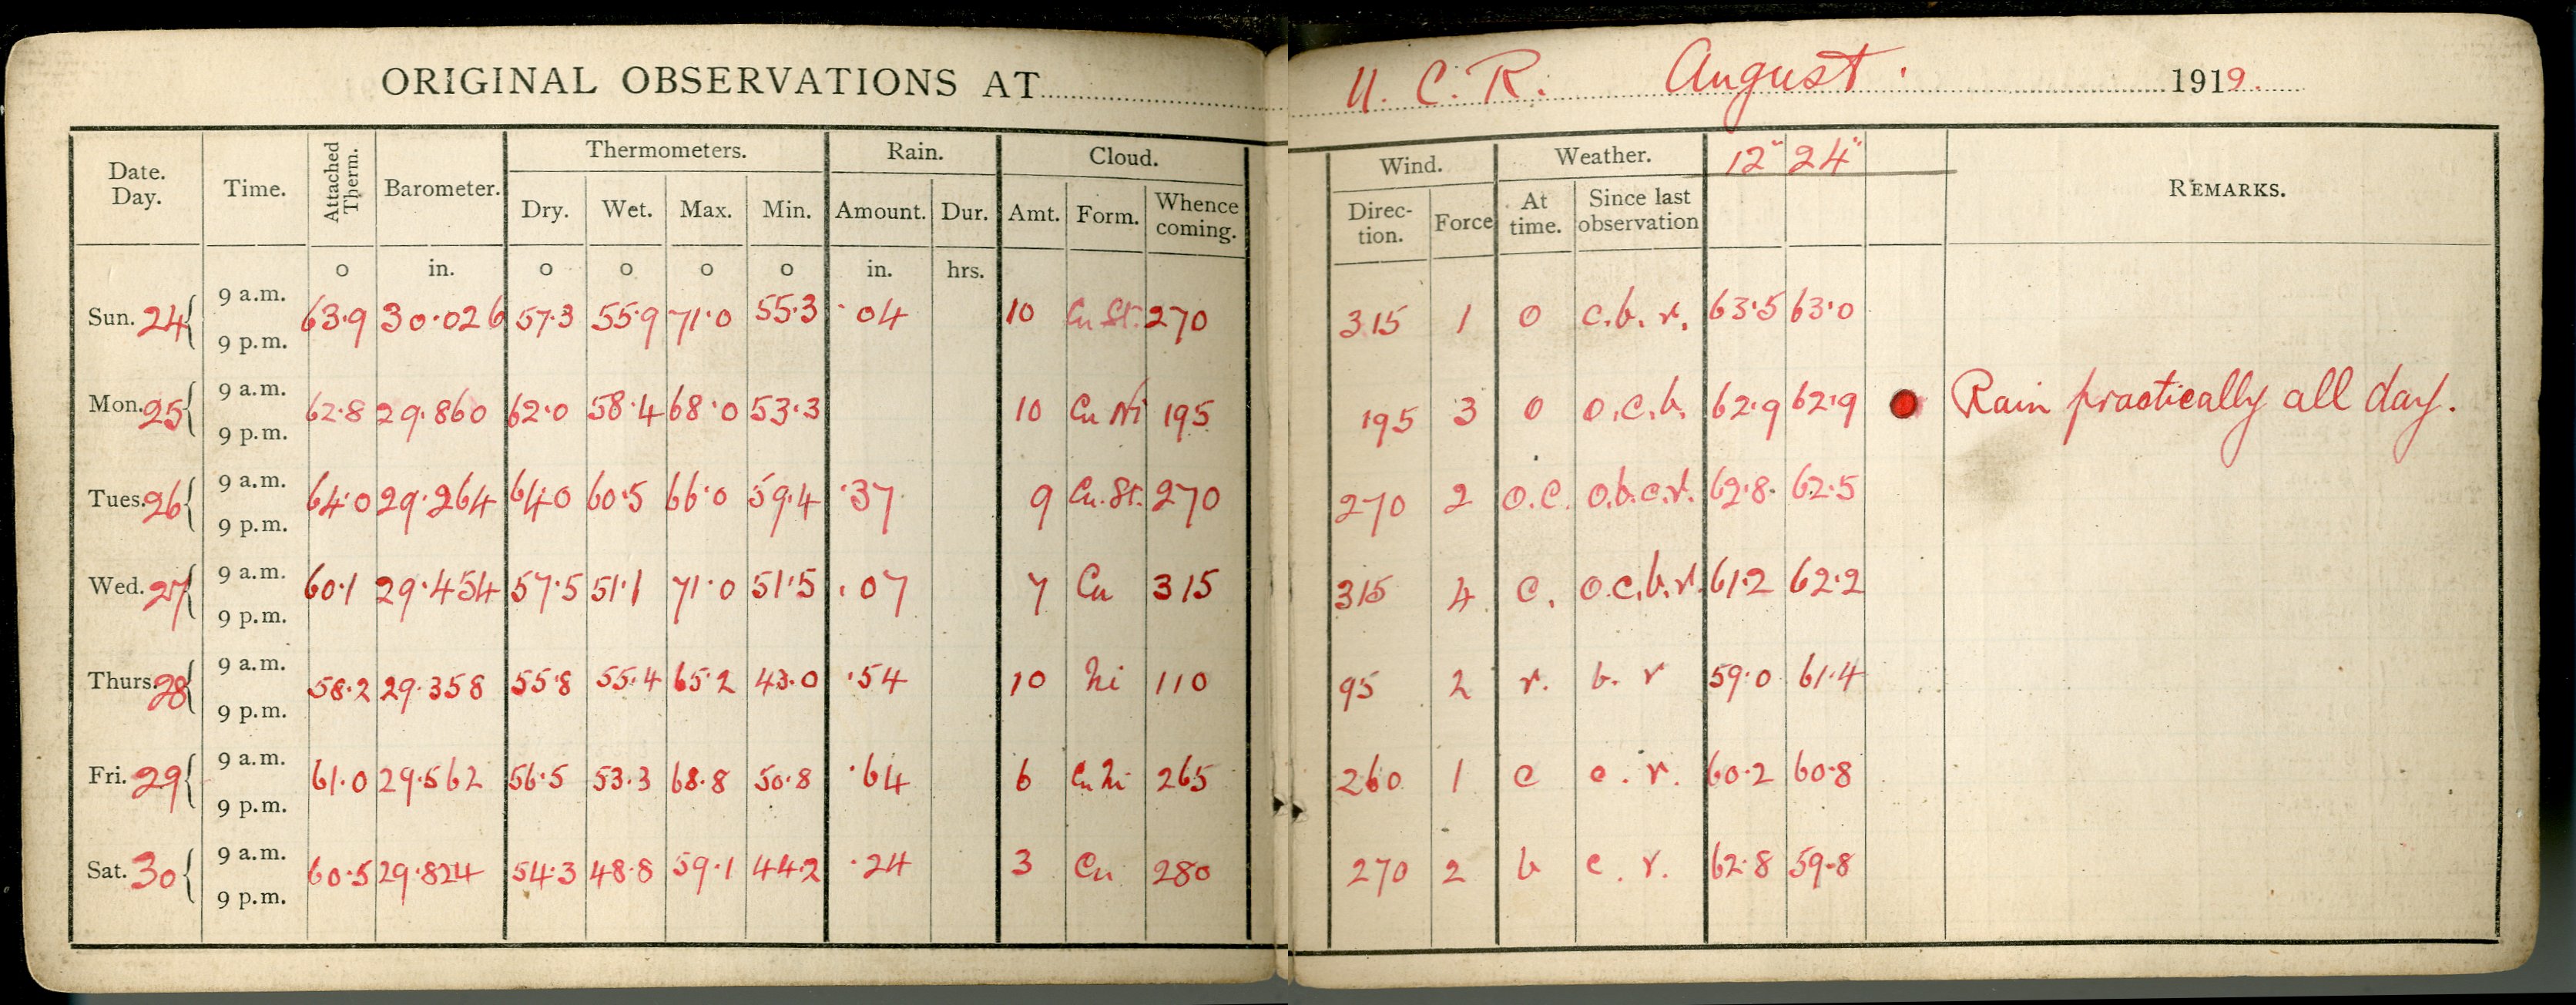 ORIGINAL OBSERVATIONS AT U. C. R. August. 1919.
Date. Day. Time. Attached Therm. Barometer. Thermometers. Rain. Cloud. Wind. Weather. 12" 24" REMARKS.
Dry. Wet. Max. Min. Amount. Dur. Amt. Form. Whence coming. Direc- tion. Force At time. Since last observation
o in. o o o o in. hrs.
Sun. 24 9 a.m. 63.9 30.026 57.3 55.9 71.0 55.3 .04 10 Cu St. 270 315 1 o c.b.r. 63.5 63.0
9 p.m.
Mon. 25 9 a.m. 62.8 29.860 62.0 58.4 68.0 53.3 10 Cu Ni 195 195 3 o o.c.b. 62.9 62.9 Rain practically all day.
9 p.m.
Tues. 26 9 a.m. 64.0 29.264 64.0 60.5 66.0 59.4 .37 9 Cu. St. 270 270 2 o.c. o.b.c.r. 62.8 62.5
9 p.m.
Wed. 27 9 a.m. 60.1 29.454 57.5 51.1 71.0 51.5 .07 7 Cu 315 315 4 c. o.c.b.r. 61.2 62.2
9 p.m.
Thurs. 28 9 a.m. 58.2 29.358 55.8 55.4 65.2 43.0 .54 10 Ni 110 95 2 r. b. r 59.0 61.4
9 p.m.
Fri. 29 9 a.m. 61.0 29.562 56.5 53.3 68.8 50.8 .64 6 Cu Ni 265 260 1 c c. r. 60.2 60.8
9 p.m.
Sat. 30 9 a.m. 60.5 29.824 54.3 48.8 59.1 44.2 .24 3 Cu 280 270 2 b c. r. 62.8 59.8
9 p.m.